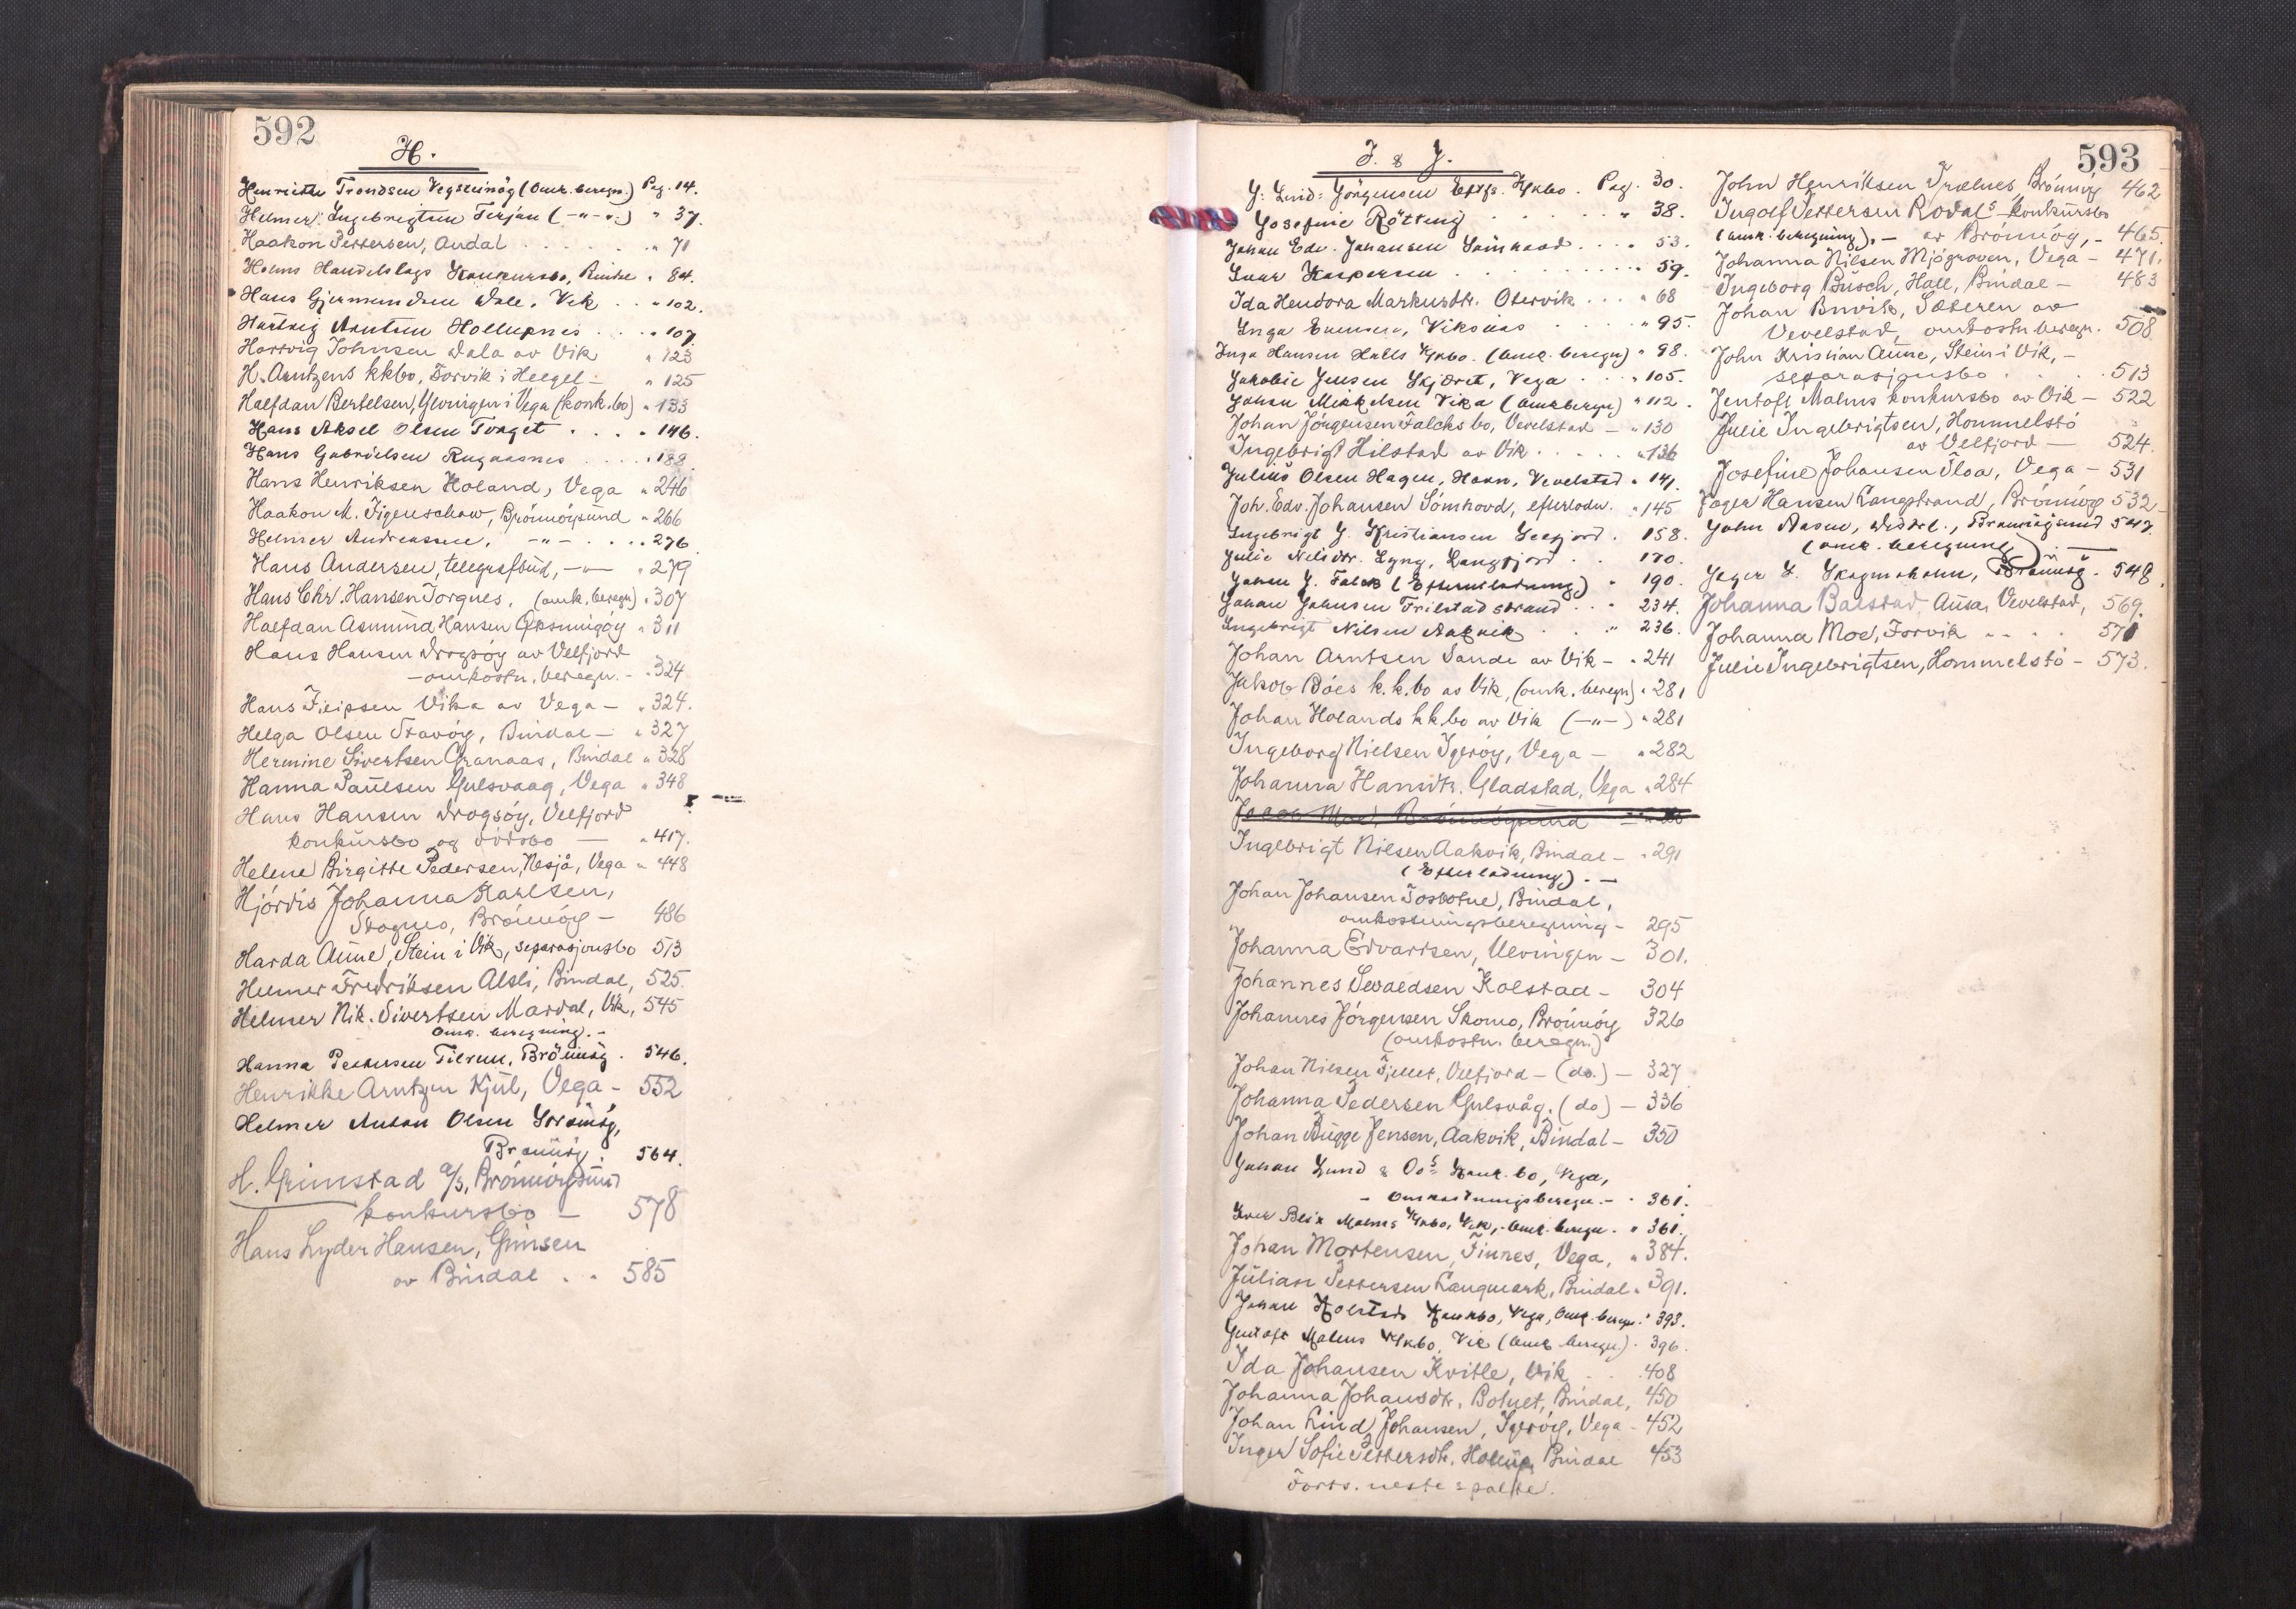 592
H.
Henriette Trondsen Vegsteinöy (Omk. beregn.) Pag. 14.
Helmer Ingebrigtsen Terjan (-"-".) " 37.
Haakon Pettersen, Andal . . . . . " 71
Holms Handelslags Konkursbo, Bindal " 84.
Hans Gjermundsen Dale, Vik . . " 102.
Hartvig Arntsen Hollupnes . . . . " 107.
Hartvig Johnsen Dala av Vik " 123
H. Arntzens kkbo, Forvik i Helgel- " 125
Halfdan Bertelsen, Ylvingen i Vega (konk.bo) " 133
Hans Aksel Olsen Torget . . . . " 146.
Hans Gabrielsen . . . . " 188
Hans Henriksen Holand, Vega " 246
Haakon M. Figenschow, Brönnöysund " 266
Helmer Andreassen, -"- . . . . 276
Hans Andersen, telegrafbud, -"- " 279
Hans Chr. Hansen Torgnes, (omk. beregn) " 307
Halfdan Asmund Hansen " 311
Hans Hansen Drogsöy av Velfjord
- omkostn. beregn. - " 324
Hans Filipsen Vika av Vega - " 324.
Helga Olsen Stavöy, Bindal - " 327
Hermine Sivertsen Granaas, Bindal " 328
Hanna Paulsen Gulsvaag, Vega " 348
Hans Hansen Drogsöy, Velfjord
konkursbo og dödsbo - " 417.
Helene Birgitte Pedersen, Nesjå, Vega " 448
Hjördis Johanna Karlsen,
Skogmo, Brönnöy - 486
Harda Aune, Stein i Vik, separasjonsbo 513
Helmer Fredriksen Alsli, Bindal, 525.
Helmer Nik. Sivertsen Mardal, Vik, 545
Omk. beregning. -
Hanna Pettersen Tilrum, Brönnöy . 546.
Henrikke Arntzen Kjul, Vega - 552
Helmer Anton Olsen
Brönnöy . 564.
H. Grimstad a/s, Brönnöysund
konkursbo - 578
Hans Lyder Hansen, Gimsen
av Bindal . . 585
593
I. & J.
J. Lind-Jörgensen Eftfs. Kkbo . Pag. 30.
Josefine Rötting . . . . . " 38.
Johan Edv. Johansen Sömhovd . . . . 53.
Ivar Kaspersen . . . . . . . . . 59.
Ida Hendora Markusdtr. Otervik . . . " 68
Inga Enensen, Viksaas . . . . . " 95.
Inga Hansen Halls Kkbo. (Omk. beregn) " 98.
Jakobie Jensen Skjæret, Vega . . . . 105.
Johan Mikkelsen Vika (Omk beregn) " 112.
Johan Jörgensen Falcks bo, Vevelstad - " 130
Ingebrigt Hilstad av Vik . . . . . " 136
Julius Olsen Hagen, Havn, Vevelstad " 141.
Joh. Edv. Johansen Sömhovd, efterlodn. " 145
Ingebrigt J. Kristiansen Leetjord . 158.
Julie Nelsdtr. Lyng, Langfjord . . 170.
Johan J. Falck (Efterutlodning) " 190.
Johan Johnsen Trilstadstrand . . . 234.
Ingebrigt Nilsen Aakvik . . " 236.
Johan Arntsen Sande av Vik - " 241
Jakob Böes k.k.bo av Vik, (omk. beregn) " 281
Johan Holands kkbo av Vik (-"-) " 281
Ingeborg Nielsen Igeröy, Vega - " 282
Johanna Hansdtr. Gladstad, Vega " 284
Jacob Moe, Brönnöysund
Ingebrigt Nilsen Aakvik, Bindal - " 291
(Efterlodning). -
Johan Johansen Tosbotne, Bindal,
omkostningsberegning - 295
Johanna Edvartsen, Ulvingen - 301.
Johannes Sevaldsen Kolstad - 304
Johannes Jörgensen Skomo, Brönnöy 326
(omkostn. beregn.)
Johan Nilsen Fjellet, Velfjord - (do.) - 327
Johanna Pedersen Gulsvåg. (do) - 336
Johan Bugge Jensen, Aakvik, Bindal - 350
Johan Lund & Co's Konk.bo, Vega,
- Omkostningsberegn. - . 361.
Iver Blix Malms Kkbo, Vik, - Omk. beregn. " 361.
Johan Mortensen, Finnes, Vega, " 384.
Julian Pettersen Langmark, Bindal " 391.
Johan Kolstads Konkbo, Vega, Omk. beregn. " 393.
Jentoft Malms Kkbo, Vik (Omk beregn.) . 396.
Ida Johansen Kvitle, Vik . . 408
Johanna Johansdtr. Botnet, Bindal, 450
Johan Lind Johansen, Igeröy, Vega - 452
Inger Sofie Pettersdtr. Hollup, Bindal 453
Forts. neste spalte.
John Henriksen Trælnes, Brönnöy 462
Ingolf Pettersen Rodals konkursbo
(omk. beregning). - av Brönnöy, - 465.
Johanna Nilsen Mjögraven, Vega - 471.
Ingeborg Busch, Hall, Bindal - 483
Johan Buvik, Sæteren av
Vevelstad, omkostn beregn. 508
John Kristian Aune, Stein i Vik, -
separasjonsbo . . . . 513
Jentoft Malms konkursbo av Vik - 522
Julie Ingebrigtsen, Hommelstö
av Velfjord - 524.
Josefine Johansen Floa, Vega - 531
Jager Hansen Langstrand, Brönnöy 532
John Aasen, Brönnöysund 547.
(omk. beregning) . -
Jeger L. Skogmoholm, Brönnöy . 548.
Johanna Baustad, Ausa, Vevelstad, 569.
Johanna Moe, Forvik . . . . 571
Julie Ingebrigtsen, Hommelstö - 573.